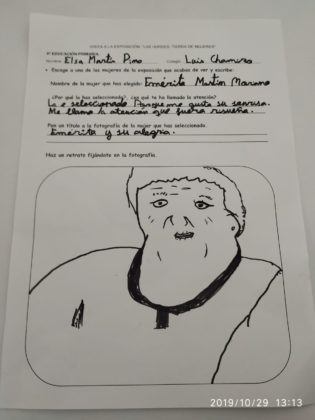 VISITA A LA EXPOSICIÓN "LAS HURDES: TIERRA DE MUJERES"
4º EDUCACIÓN PRIMARIA
Nombre: Elsa Martín Pino Colegio: Luis Chamizo
• Escoge a una de las mujeres de la exposición que acabas de ver y escribe:
Nombre de la mujer que has elegido: Emérita Martín Mariano
¿Por qué la has seleccionado? ¿en qué te ha llamado la atención?
La e seleccionado Porque me gusta su sonrisa.
Me llama la atención que fuera risueña.
Pon un título a la fotografía de la mujer que has seleccionado
Emérita y su alegría.
Haz un retrato fijándote en la fotografía.
2019/10/29 13:13